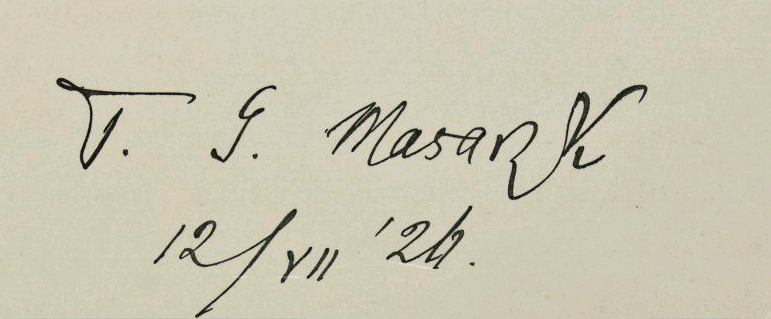 T. G. Masaryk
12/VII '24.